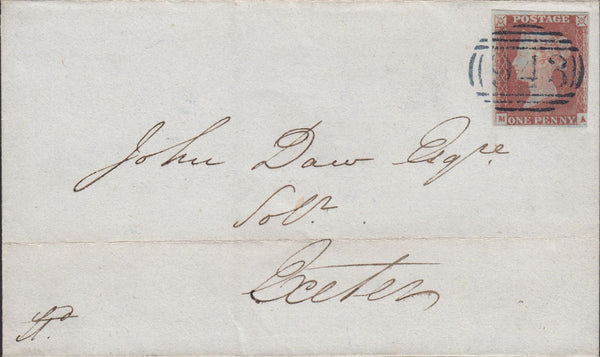 POSTAGE
M ONE PENNY A
John Daw Esqre
Solr.
Exeter